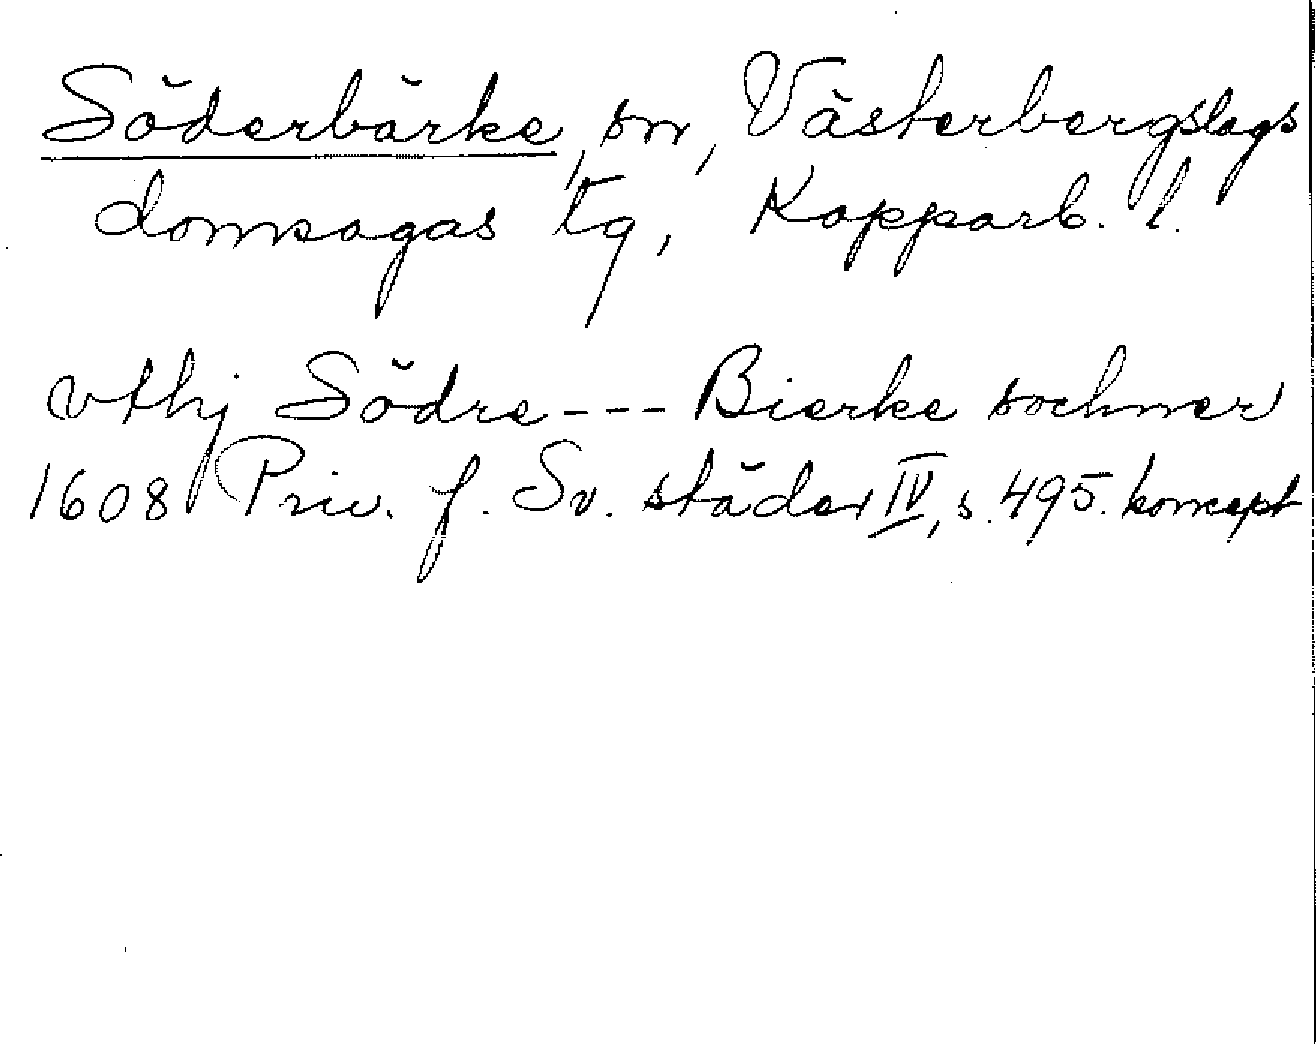 Söderbärke, sn, Västerbergslags
domsagas tg, Kopparb. l.
vthj Södre --- Bierke sochner
1608 Priv. f. Sv. städer IV, s. 495. koncept